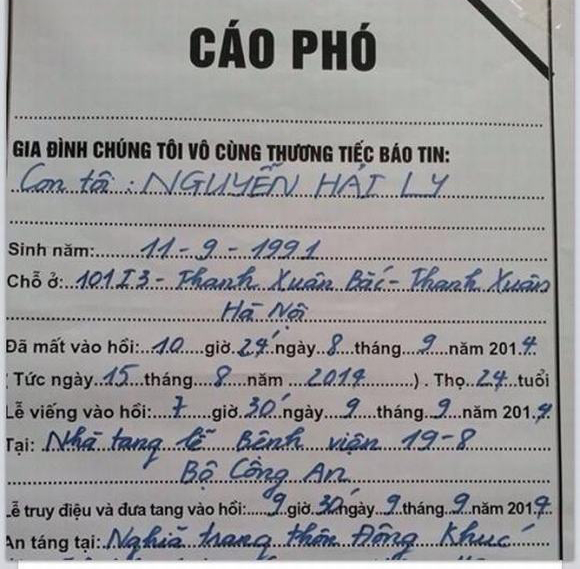 CÁO PHÓ
GIA ĐÌNH CHÚNG TÔI VÔ CÙNG THƯƠNG TIẾC BÁO TIN:
Con tôi: NGUYỄN HẢI LY
Sinh năm: 11-9-1991
Chỗ ở: 101I3 - Thanh Xuân Bắc - Thanh Xuân
Hà Nội
Đã mất vào hồi: 10 giờ 24' ngày 8 tháng 9 năm 2014
( Tức ngày 15 tháng 8 năm 2014 ). Thọ 24 tuổi
Lễ viếng vào hồi: 7 giờ 30' ngày 9 tháng 9 năm 2014
Tại: Nhà tang lễ Bệnh viện 19-8
Bộ Công An
Lễ truy điệu và đưa tang vào hồi: 9 giờ 30' ngày 9 tháng 9 năm 2014
An táng tại: Nghĩa trang thôn Đông Khúc